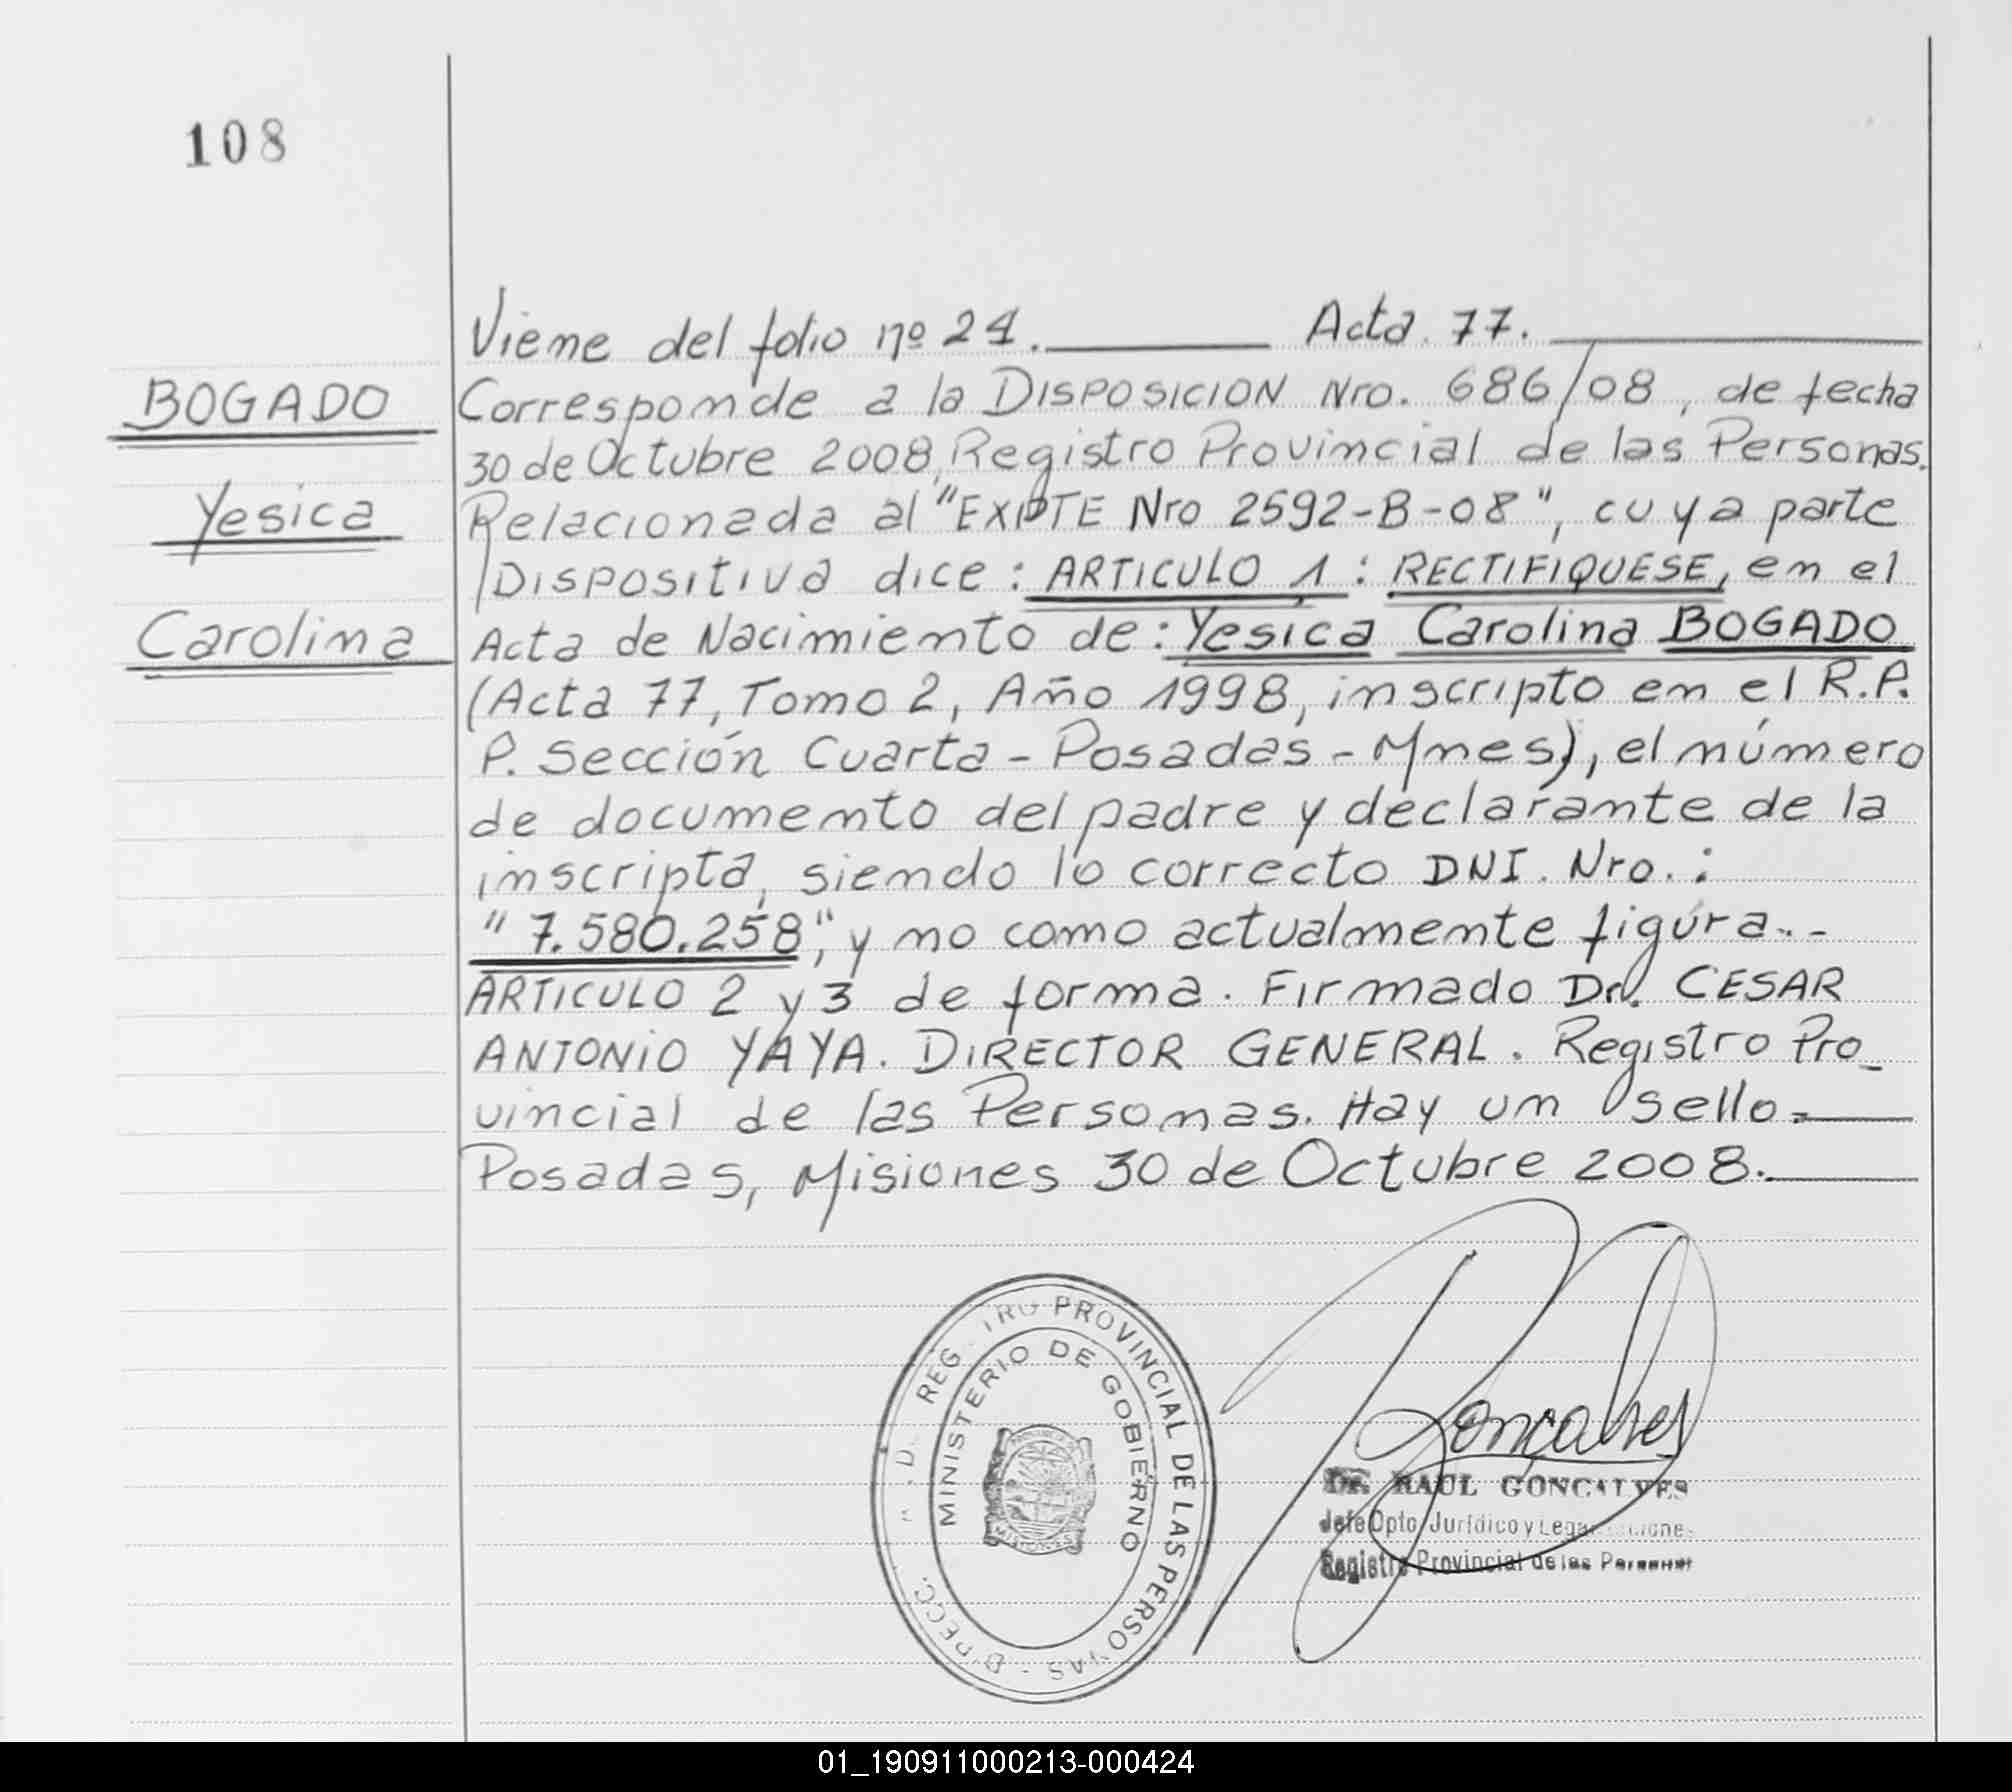 108
Viene del folio nº 24. Acta 77.
BOGADO
Yesica
Carolina
Corresponde a la DISPOSICION Nro. 686/08, de fecha
30 de Octubre 2008, Registro Provincial de las Personas.
Relacionada al "EXPTE Nro 2592-B-08", cuya parte
DISPOSITIVA dice: ARTICULO 1: RECTIFIQUESE, en el
Acta de Nacimiento de: Yesica Carolina BOGADO
(Acta 77, Tomo 2, Año 1998, inscripto en el R.P.
P. Sección Cuarta - Posadas - Mnes), el número
de documento del padre y declarante de la
inscripta, siendo lo correcto DNI. Nro.:
"7.580.258", y no como actualmente figura.-
ARTICULO 2 y 3 de forma. Firmado Dr. CESAR
ANTONIO YAYA. DIRECTOR GENERAL. Registro Pro-
vincial de las Personas. Hay un sello.
Posadas, Misiones 30 de Octubre 2008.
REGISTRO PROVINCIAL DE LAS PERSONAS
MINISTERIO DE GOBIERNO
MISIONES
Gonçalves
Dr. RAUL GONÇALVES
Jefe Dpto. Jurídico y
Registro Provincial de las Personas
01_190911000213-000424